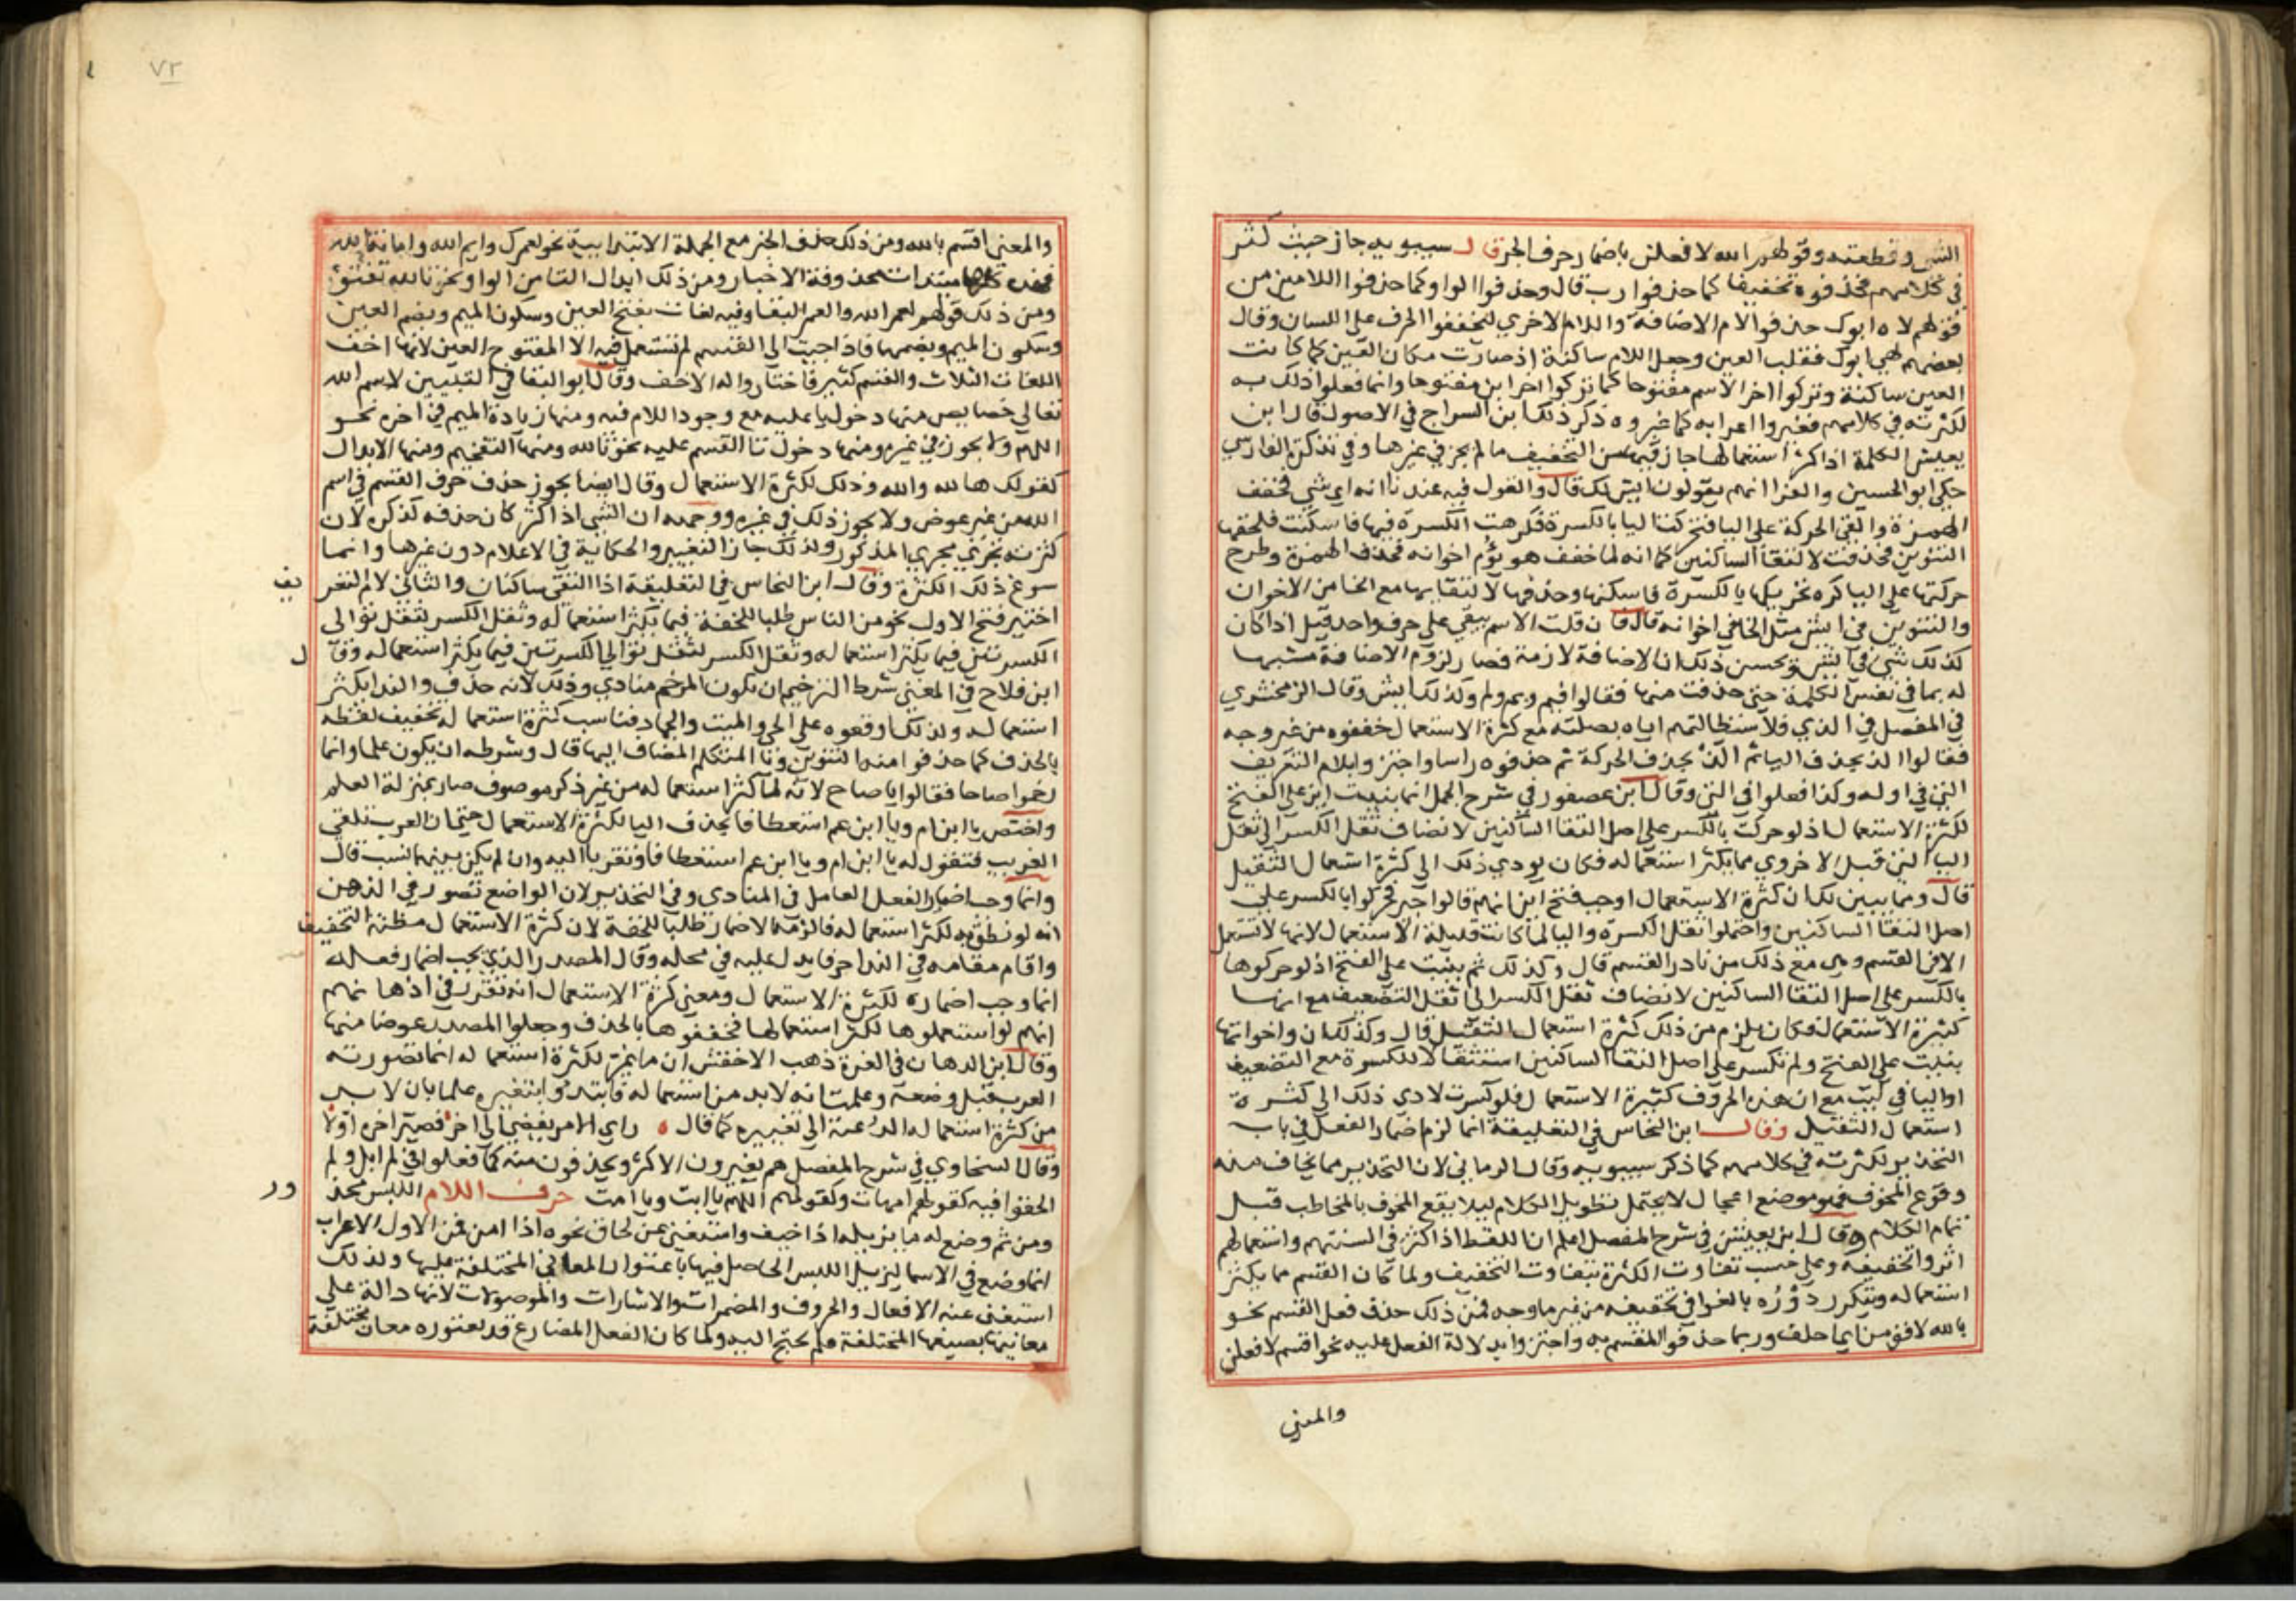 الشي وقطعته وقولهم الله لافعلن باضمار حرف الجر قال سيبويه جاز حيث كثر
في كلامهم فحذفوه تخفيفا كما حذفوا رب قال وحذفوا الواو كما حذفوا اللامين من
قولهم لاه ابوك حذفوا لام الاضافة واللام الاخري ليخففوا الحرف على اللسان وقال
بعضهم لهي ابوك فقلب العين وجعل اللام ساكنة اذ صارت مكان العين كما كانت
العين ساكنة وتركوا اخر الاسم مفتوحا كما تركوا اخر اين مفتوحا وانما فعلوا ذلك به
لكثرته في كلامهم فغيروا اعرابه كما غيروه ذكر ذلك ابن السراج في الاصول قال ابن
يعيش الكلمة اذا كثر استعمالها جاز فيها من التخفيف ما لم يجز في غيرها وفي تذكرة الفارسي
حكي ابو الحسين والفرا انهم يقولون ايش لك قال والقول فيه عندنا انه اي شي فخفف
الهمزة والقي الحركة على اليا فتحركت اليا بالكسرة فكرهت الكسرة فيها فاسكنت فلحقها
التنوين فحذفت لالتقا الساكنين كما انه لما خفف هو يؤم اخوانه فحذف الهمزة وطرح
حركتها على اليا كره تحريكها بالكسرة فاسكنها وحذفها لالتقايها مع الخا من الاخوان
والتنوين في ايش مثل الخا في اخوانه قال فان قلت الاسم يبقي على حرف واحد قيل اذا كان
كذلك شي في وحسن ذلك ان الاضافة لازمة فصار لزوم الاضافة مشبها
له بما في نفس الكلمة حتي حذفت منها فقالوا فيم وبم ولم وكذلك ايش وقال الزمخشري
في المفصل في الذي ولاستطالتهم اياه بصلته مع كثرة الاستعمال خففوه من غير وجه
فقالوا الذ بحذف اليا ثم الذ بحذف الحركة ثم حذفوه راسا واجتزوا بلام التعريف
التي في اوله وكذا فعلوا في التي وقال ابن عصفور في شرح الجمل انما بنيت اين على الفتح
لكثرة الاستعمال اذ لو حركت بالكسر على اصل التقا الساكنين لانضاف ثقل الكسر الى ثقل
اليا التي قبل الاخر وهي مما يكثر استعماله فكان يودي ذلك الى كثرة استعمال الثقيل
قال ومما يبين لك ان كثرة الاستعمال اوجب فتح اين انهم قالوا جير فحركوا بالكسر على
اصل التقا الساكنين واحتملوا ثقل الكسرة واليا لما كانت قليلة الاستعمال لانها لا تستعمل
الا في القسم وهي مع ذلك من نادر القسم قال وكذلك ثم بنيت على الفتح اذ لو حركوها
بالكسر على اصل التقا الساكنين لانضاف ثقل الكسر الى ثقل التضعيف مع انها
كثيرة الاستعمال فكان يلزم من ذلك كثرة استعمال الثقيل قال وكذلك ان واخواتها
بنيت على الفتح ولم تكسر على اصل التقا الساكنين استثقالا للكسرة مع التضعيف
او اليا في ليت مع ان هذه الحروف كثيرة الاستعمال فلو كسرت لادي ذلك الى كثرة
استعمال الثقيل وقال ابن النحاس في التعليقة انما لزم اضمار الفعل في باب
التحذير لكثرته في كلامهم كما ذكر سيبويه وقال الرماني لان التحذير مما يخاف منه
وقوع المخوف فهو موضع اعجال لا يحتمل تطويل الكلام ليلا يقع المخوف بالمخاطب قبل
تمام الكلام وقال ابن يعيش في شرح المفصل اعلم ان اللفظ اذا كثر في السنتهم واستعمالهم
اثروا تخفيفه وعلى حسب تفاوت الكثرة يتفاوت التخفيف ولما كان القسم مما يكثر
استعماله ويتكرر دوره بالغوا في تخفيفه من غير ما وجه فمن ذلك حذف فعل القسم نحو
بالله لاقومن اي احلف وربما حذفوا المقسم به واجتزوا بدلالة الفعل عليه نحو اقسم لافعلن
والمعني
٧٢
والمعني اقسم بالله ومن ذلك حذف الخبر مع الجملة الابتدايية نحو لعمرك وايم الله وامانة الله
فهذه كلها مبتدات محذوفة الاخبار ومن ذلك ابدال التا من الواو نحو تالله تفتؤ
ومن ذلك قولهم لعمر الله والعمر البقا وفيه لغات بفتح العين وسكون الميم وبضم العين
وسكون الميم وبضمها فاذا جيت الى القسم لم تستعمل فيه الا المفتوح العين لانها اخف
اللغات الثلاث والقسم كثير فاختاروا له الاخف وقال ابو البقا في التبيين لاسم الله
تعالى خصايص منها دخول يا عليه مع وجود اللام فيه ومنها زيادة الميم في اخره نحو
اللهم ولا يجوز في غيره ومنها دخول تا القسم عليه نحو تالله ومنها التفخيم ومنها الابدال
كقولك ها لله والله وذلك لكثرة الاستعمال وقال ايضا يجوز حذف حرف القسم في اسم
الله من غير عوض ولا يجوز ذلك في غيره ووجهه ان الشي اذا كثر كان حذفه كذكره لان
كثرته تجري مجري المذكور ولذلك جاز التغيير والحكاية في الاعلام دون غيرها وانما
سوغ ذلك الكثرة وقال ابن النحاس في التعليقة اذا التقي ساكنان والثاني لام التعريف
اختير فتح الاول نحو من الناس طلبا للخفة فيما يكثر استعماله وثقل الكسر لثقل توالى
الكسرتين فيما يكثر استعماله وثقل الكسر لثقل توالي الكسرتين فيما يكثر استعماله وقال
ابن فلاح في المغني شرط الترخيم ان يكون المرخم منادي وذلك لانه حذف والندا يكثر
استعماله ولذلك اوقعوه على الحي والميت والجماد فناسب كثرة استعماله تخفيف لفظه
بالحذف كما حذفوا منه التنوين ويا المتكلم المضاف اليها قال وشرطه ان يكون علما وانما
رخموا صاحبا فقالوا يا صاح لانه لما كثر استعماله من غير ذكر موصوف صار بمنزلة العلم
واختص يا ابن ام ويا ابن عم استعطافا بحذف اليا لكثرة الاستعمال حتي ان العرب تلقي
الغريب فتقول له يا ابن ام ويا ابن عم استعطافا وتقربا اليه وان لم يكن بينهما نسب قال
وانما وجب اضمار الفعل العامل في المنادي وفي التحذير لان الواضع تصور في الذهن
انه لو نطق به لكثر استعماله فالزمه الاضمار طلبا للخفة لان كثرة الاستعمال مظنة التخفيف
واقام مقامه في الندا حرفا يدل عليه في محله وقال المصدر الذي يجب اضمار فعله
انما وجب اضماره لكثرة الاستعمال ومعني كثرة الاستعمال انه تقرر في اذهانهم
انهم لو استعملوها لكثر استعمالها فخففوها بالحذف وجعلوا المصدر عوضا منها
وقال ابن الدهان في الغرة ذهب الاخفش ان ما غير لكثرة استعماله انما تصورته
العرب قبل وضعه وعلمت انه لا بد من استعماله فابتدوا بتغييره علما بان لا بد
من كثرة استعماله الداعية الى تغييره كما قال ه راي الامر يفضي الى اخر فصير اخره اولا
وقال السخاوي في شرح المفصل هم يغيرون الاكثر ويحذفون منه كما فعلوا في لم ابل ولم
الحقوا فيه كقولهم امهات وكقولهم اللهم يا ابت ويا امت حرف اللام اللبس محذور
ومن ثم وضع له ما يزيله اذا خيف واستغني عن لحاق نحوه اذا امن فمن الاول الاعراب
انما وضع في الاسما ليزيل اللبس الحاصل فيها باعتوار المعاني المختلفة عليها ولذلك
استغني عنه الافعال والحروف والمضمرات والاشارات والموصولات لانها دالة على
معانيها بصيغها المختلفة فلم يحتج اليه ولما كان الفعل المضارع قد يعتوره معان مختلفة